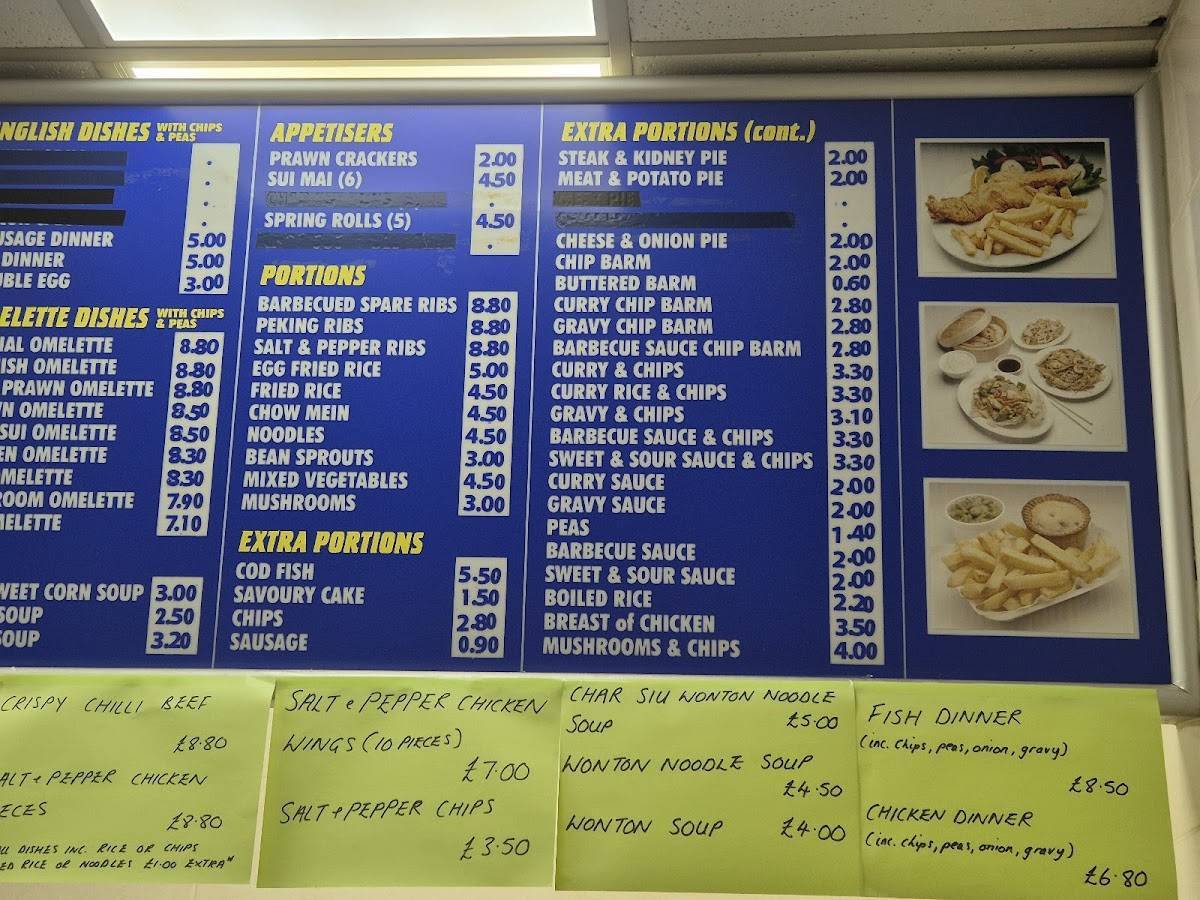 ENGLISH DISHES WITH CHIPS & PEAS
DINNER 5.00
DINNER 5.00
EGG 3.00
DISHES WITH CHIPS & PEAS
OMELETTE 8.80
OMELETTE 8.80
PRAWN OMELETTE 8.80
OMELETTE 8.50
SUI OMELETTE 8.50
OMELETTE 8.30
8.30
OMELETTE 7.90
7.10
SWEET CORN SOUP 3.00
SOUP 2.50
SOUP 3.20
APPETISERS
PRAWN CRACKERS 2.00
SUI MAI (6) 4.50
SPRING ROLLS (5) 4.50
PORTIONS
BARBECUED SPARE RIBS 8.80
PEKING RIBS 8.80
SALT & PEPPER RIBS 8.80
EGG FRIED RICE 5.00
FRIED RICE 4.50
CHOW MEIN 4.50
NOODLES 4.50
BEAN SPROUTS 3.00
MIXED VEGETABLES 4.50
MUSHROOMS 3.00
EXTRA PORTIONS
COD FISH 5.50
SAVOURY CAKE 1.50
CHIPS 2.80
SAUSAGE 0.90
EXTRA PORTIONS (cont.)
STEAK & KIDNEY PIE 2.00
MEAT & POTATO PIE 2.00
CHEESE & ONION PIE 2.00
CHIP BARM 2.00
BUTTERED BARM 0.60
CURRY CHIP BARM 2.80
GRAVY CHIP BARM 2.80
BARBECUE SAUCE CHIP BARM 2.80
CURRY & CHIPS 3.30
CURRY RICE & CHIPS 3.30
GRAVY & CHIPS 3.10
BARBECUE SAUCE & CHIPS 3.30
SWEET & SOUR SAUCE & CHIPS 3.30
CURRY SAUCE 2.00
GRAVY SAUCE 2.00
PEAS 1.40
BARBECUE SAUCE 2.00
SWEET & SOUR SAUCE 2.00
BOILED RICE 2.20
BREAST of CHICKEN 3.50
MUSHROOMS & CHIPS 4.00
CRISPY CHILLI BEEF
£8.80
PEPPER CHICKEN
£8.80
DISHES INC. RICE OR CHIPS
RICE OR NOODLES £1.00 EXTRA*
SALT & PEPPER CHICKEN
WINGS (10 PIECES)
£7.00
SALT & PEPPER CHIPS
£3.50
CHAR SIU WONTON NOODLE
SOUP £5.00
WONTON NOODLE SOUP
£4.50
WONTON SOUP £4.00
FISH DINNER
(inc. chips, peas, onion, gravy)
£8.50
CHICKEN DINNER
(inc. chips, peas, onion, gravy)
£6.80